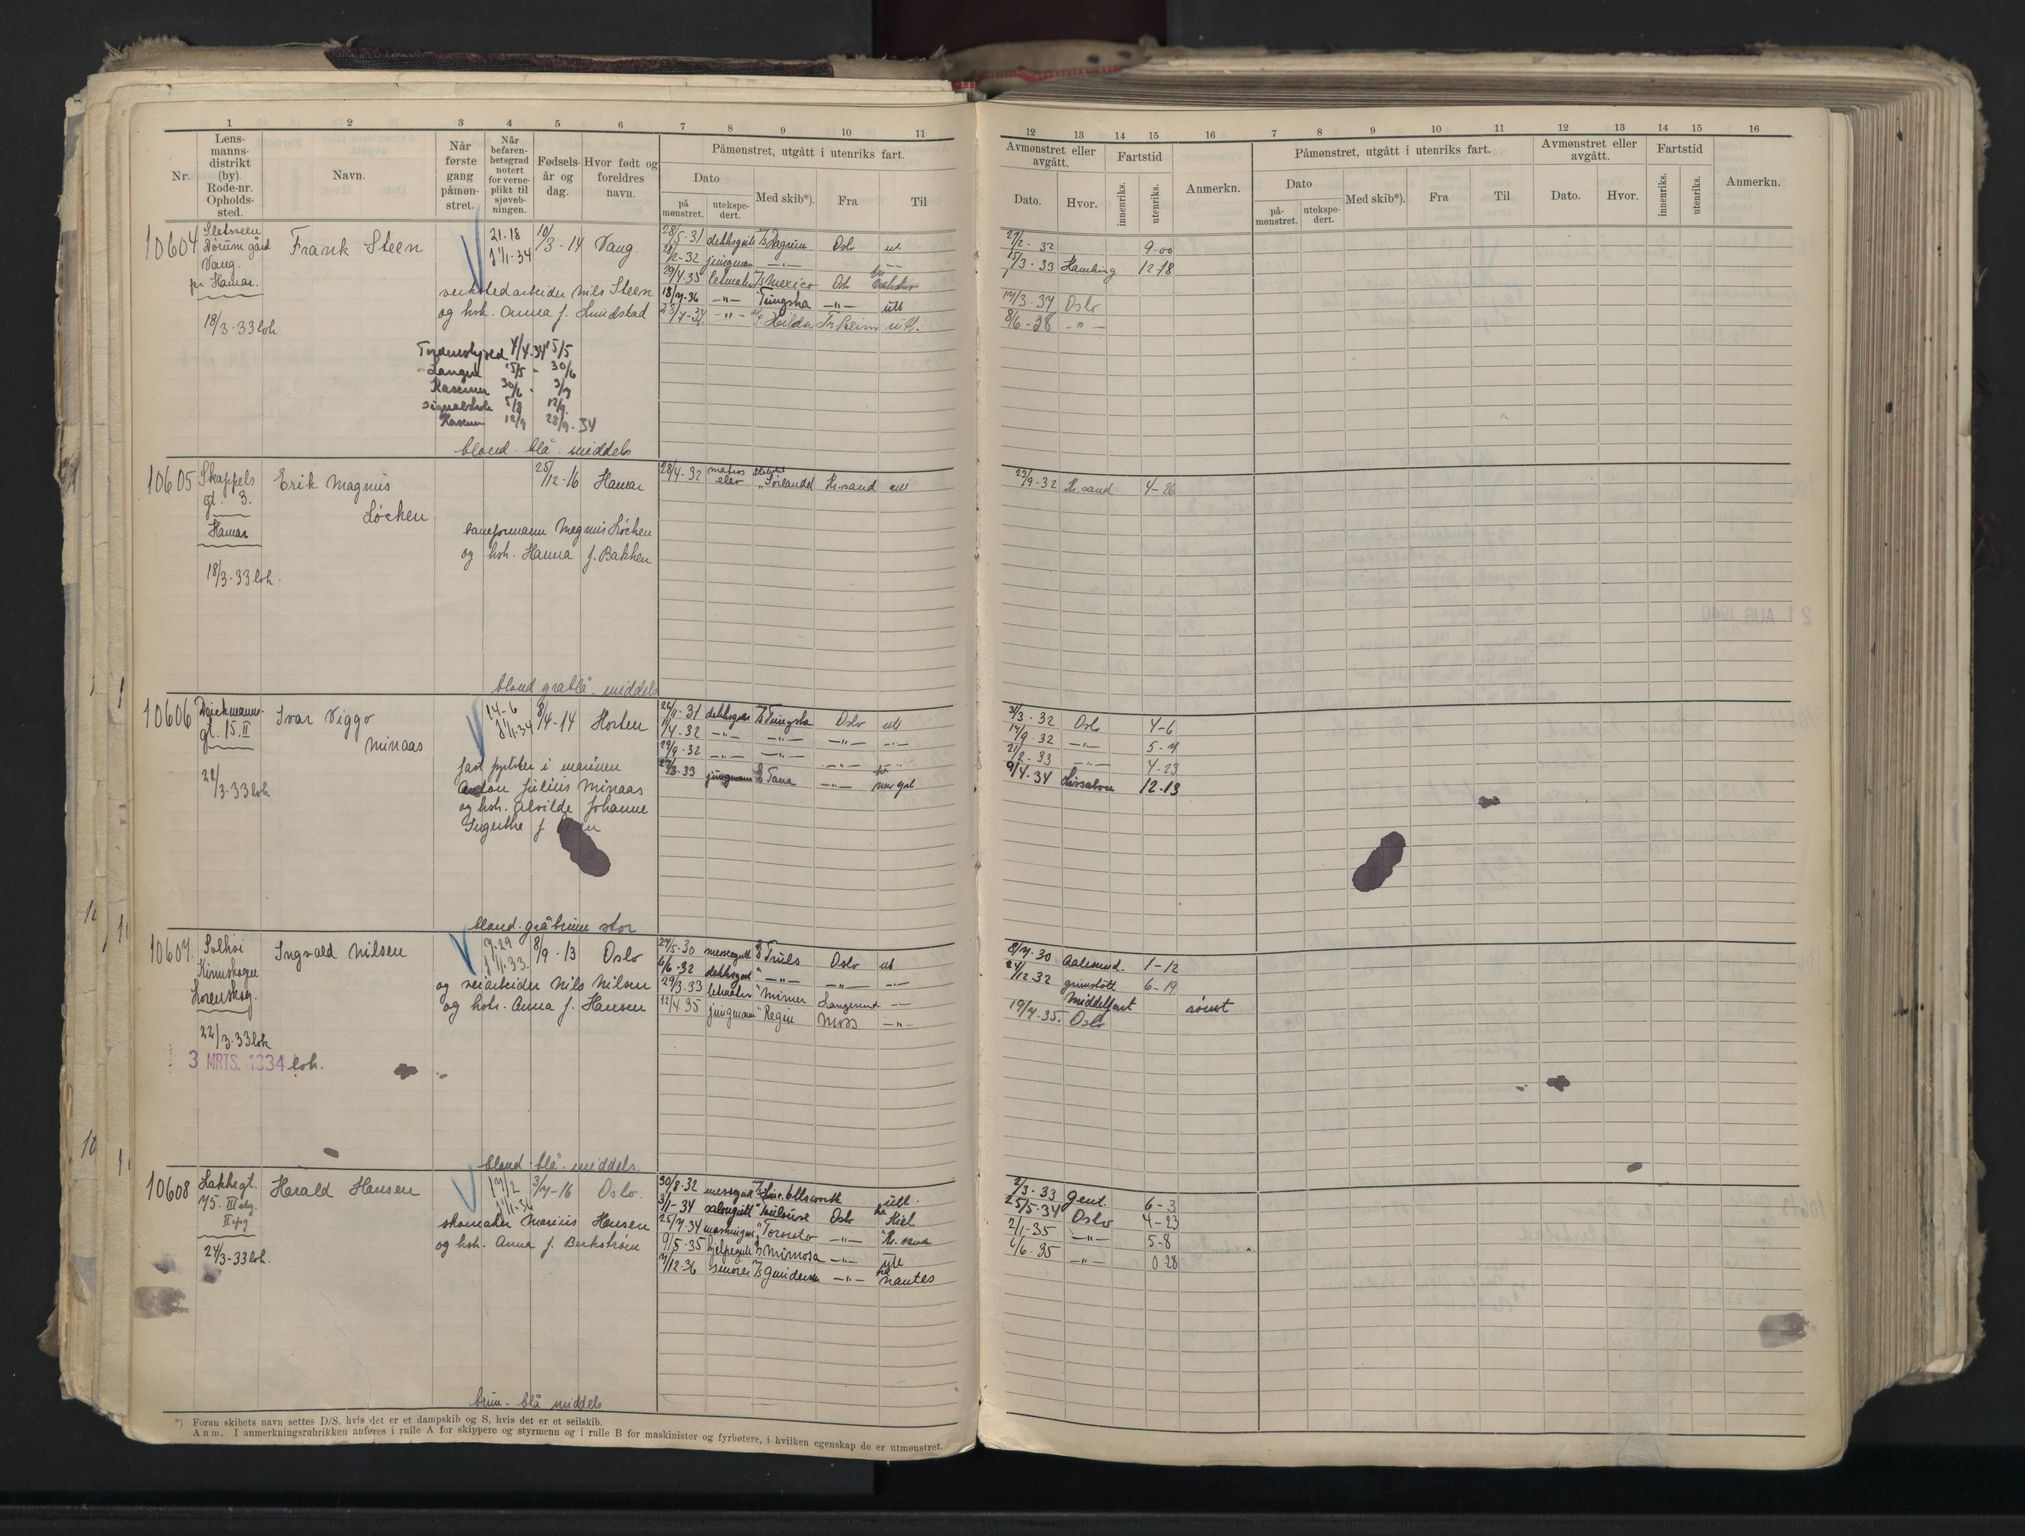 1 2 3 4 5 6 7 8 9 10 11
Nr.
Lens-
manns-
distrikt
(by).
Rode-nr.
Opholds-
sted.
Navn.
Når
første
gang
påmøn-
stret.
Når
befaren-
hetsgrad
notert
for verne-
plikt til
sjøveb-
ningen.
Fødsels-
år og
dag.
Hvor født og
foreldres
navn.
Påmønstret, utgått i utenriks fart.
Dato
på
mønstret.
utekspe-
dert.
Med skib*).
Fra
Til
12 13 14 15 16 7 8 9 10 11 12 13 14 15 16
Avmønstret eller
avgått.
Dato.
Hvor.
Fartstid
innenriks.
utenriks.
Anmerkn.
Påmønstret, utgått i utenriks fart.
Dato
på-
mønstret.
utekspe-
dert.
Med skib*).
Fra
Til
Avmønstret eller
avgått.
Dato.
Hvor.
Fartstid
innenriks.
utenriks.
Anmerkn.
10604
Dørum gård
Vang.
pr Hamar.
18/3-33 loh
Frank Steen
21-18
1/1-34
10/3-14 Vang.
verkstedarbeider Nils Steen
og hst. Anna f. Lundstad
4/4-34 5/5
5/5 - 30/6
Kaserner 30/6 -
5/8 12/9
12/9 28/9-34
blond. blå. middels
28/5-31 dekksgutt Oslo ut
2-32 jungmann -"-
29/4-35 letmatr. Mexico
18/7-36 -"- Tungsha -"- utt
-"- Hilda
27/2-32 9-00
15/3-33 Hamburg 12-18
17/3-37 Oslo
8/6-38 -"-
10605
Skappels
gt. 3.
Hamar
18/3-33 loh.
Erik Magnus
Løchen
25/12-16 Hamar
baneformann Magnus Løchen
og hst. Hanna f. Bakken
blond gråblå. middels
28/4-32 matros
elev Sørlandet Kr.sand utt
23/9-32 Kr.sand 4-26
10606
Deichmanns-
gt. 15. II
22/3-33 loh
Ivar Viggo
Minaas
14-6
1/1-34
8/4-14 Horten
fast pyrtster i marinen
Anton Julius Minaas
og hst. Alvilde Johanne
Ingerthe f.
blond. gråbrun stor
26/11-31 dekksgutt Tungsha Oslo utt
11/4-32 -"- -"- -"- -"-
29/9-32 -"- -"- -"-
jungmann Tana -"-
31/3-32 Oslo 4-6
17/9-32 -"- 5-7
21/2-33 -"- 4-23
9/4-34 12-13
10607.
Solhøi
Lørenskog.
22/3-33 loh
3 MRTS. 1934 loh.
Ingvald Nilsen
9-29
1/1-33.
8/9-13 Oslo
og veiarbeider Nils Nilsen
og hst. Anna f. Hansen
blond. blå. middels.
27/5-30 messegutt Truls Oslo ut
6/6-32 dekksgutt -"- -"-
29/3-33 letmatr Mimer Langesund -"-
12/4-35 jungmann Regin Moss -"-
8/7-30 Aalesund. 1-12
24/12-32 6-19
Middelfart rømt
19/7-35. Oslo
10608
Lakkegt.
75. III
24/3-33 loh.
Harald Hansen
17/2
1/1-36
3/7-16 Oslo.
skomaker Marius Hansen
og hst. Anna f. Beckstrøm
brun. blå middels
30/8-32 messegutt Linc. Ellsworth utt.
3/1-34 salongutt Toulouse Oslo Kiel
25/7-34 Toronto -"- Kr.sand
9/5-35 hjelpegutt Mimosa -"- utt
7/12-36 smører Gundersen -"- Nantes
2/3-33 Gent. 6-3
25/5-34 Oslo 4-23
2/1-35 -"- 5-8
6/6-35 -"- 0-28
21 AUG 1940
*) Foran skibets navn settes D/S, hvis det er et dampskib og S, hvis det er et seilskib.
Anm. I anmerkningsrubrikken anføres i rulle A for skippere og styrmenn og i rulle B for maskinister og fyrbøtere, i hvilken egenskap de er utmønstret.